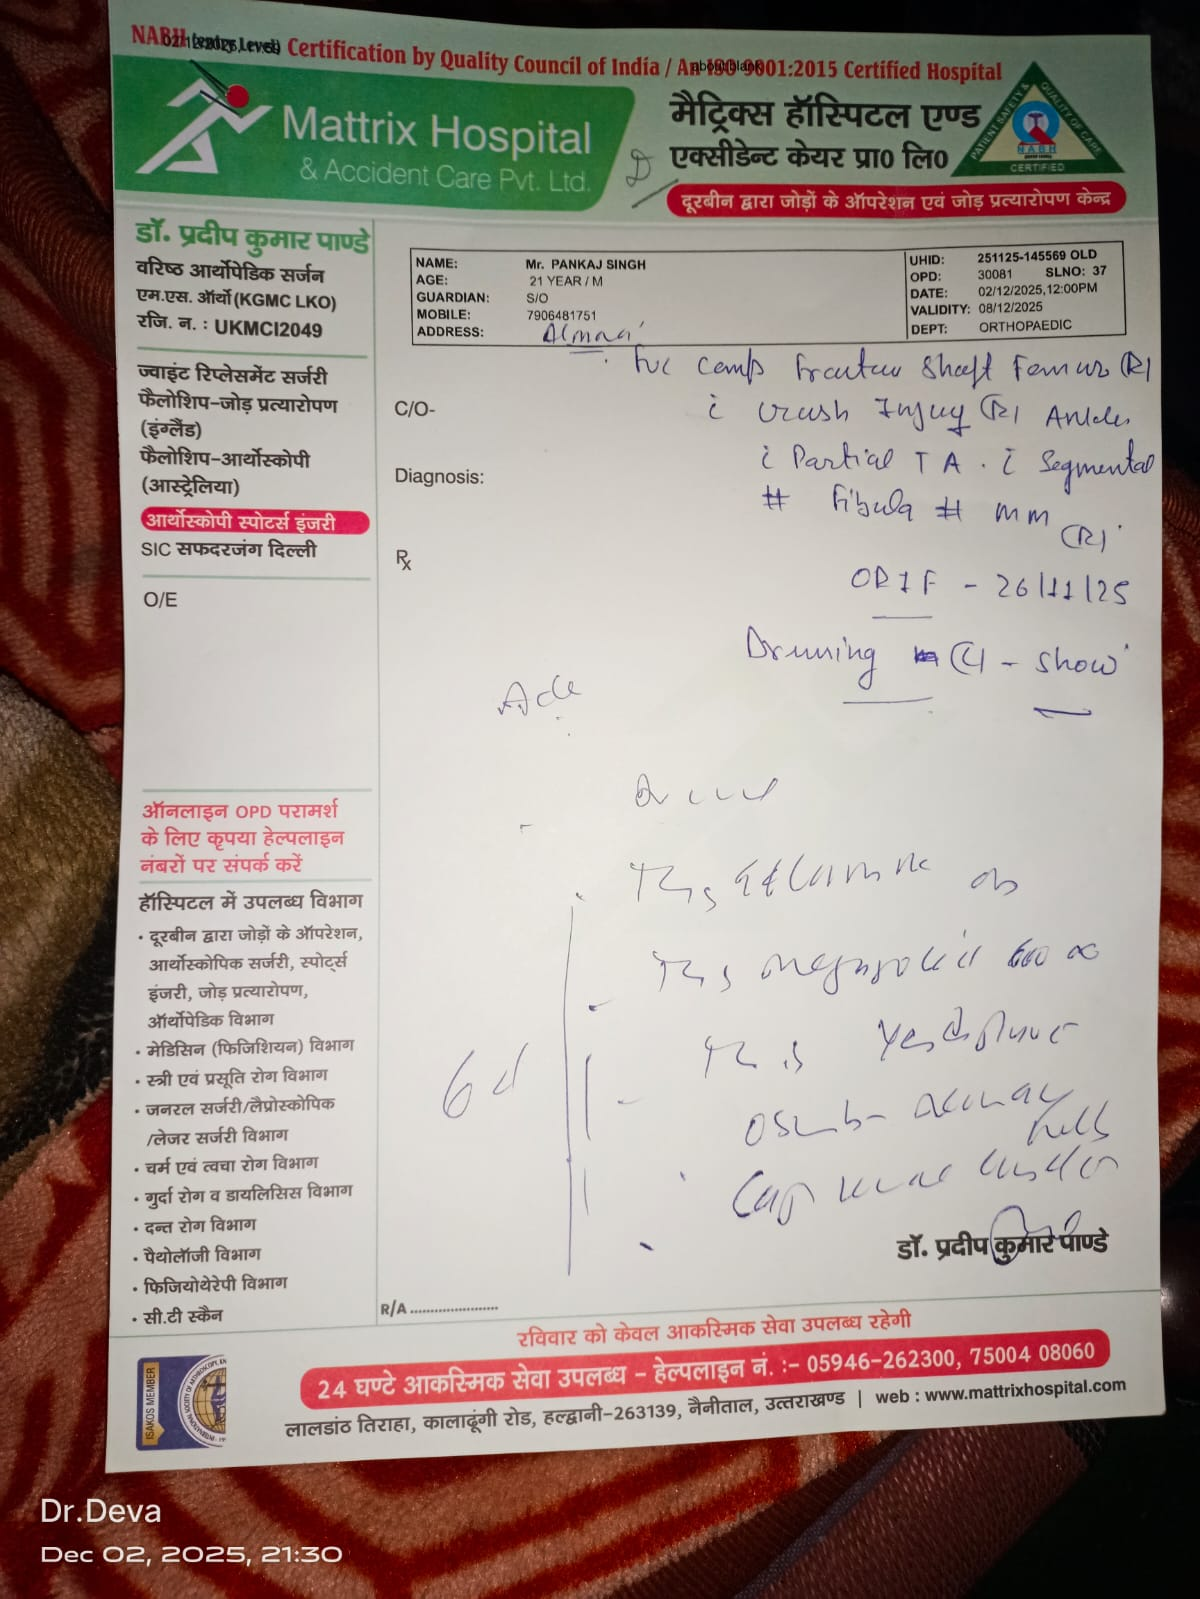 NABH (entry Level) Certification by Quality Council of India / An ISO 9001:2015 Certified Hospital
02/12/2025,
about:blank
Mattrix Hospital
& Accident Care Pvt. Ltd.
मैट्रिक्स हॉस्पिटल एण्ड
एक्सीडेन्ट केयर प्रा० लि०
दूरबीन द्वारा जोड़ों के ऑपरेशन एवं जोड़ प्रत्यारोपण केन्द्र
PATIENT SAFETY & QUALITY OF CARE
NABH
CERTIFIED
डॉ. प्रदीप कुमार पाण्डे
वरिष्ठ आर्थोपेडिक सर्जन
एम.एस. ऑर्थो (KGMC LKO)
रजि. न. : UKMCI2049
ज्वाइंट रिप्लेसमेंट सर्जरी
फैलोशिप-जोड़ प्रत्यारोपण
(इंग्लैंड)
फैलोशिप-आर्थोस्कोपी
(आस्ट्रेलिया)
आर्थोस्कोपी स्पोटर्स इंजरी
SIC सफदरजंग दिल्ली
O/E
ऑनलाइन OPD परामर्श
के लिए कृपया हेल्पलाइन
नंबरों पर संपर्क करें
हॉस्पिटल में उपलब्ध विभाग
• दूरबीन द्वारा जोड़ों के ऑपरेशन,
आर्थोस्कोपिक सर्जरी, स्पोर्ट्स
इंजरी, जोड़ प्रत्यारोपण,
ऑर्थोपेडिक विभाग
• मेडिसिन (फिजिशियन) विभाग
• स्त्री एवं प्रसूति रोग विभाग
• जनरल सर्जरी/लैप्रोस्कोपिक
/लेजर सर्जरी विभाग
• चर्म एवं त्वचा रोग विभाग
• गुर्दा रोग व डायलिसिस विभाग
• दन्त रोग विभाग
• पैथोलॉजी विभाग
• फिजियोथेरेपी विभाग
• सी.टी स्कैन
NAME: Mr. PANKAJ SINGH
AGE: 21 YEAR / M
GUARDIAN: S/O
MOBILE: 7906481751
ADDRESS:
UHID: 251125-145569 OLD
OPD: 30081 SLNO: 37
DATE: 02/12/2025,12:00PM
VALIDITY: 08/12/2025
DEPT: ORTHOPAEDIC
Shaft Femur (R)
C/O-
Crush Injury (R) Ankle
Diagnosis:
Partial T A . Segmental
# Fibula # MM
(R)
Rx
ORIF - 26/11/25
show
6d
डॉ. प्रदीप कुमार पाण्डे
R/A
रविवार को केवल आकस्मिक सेवा उपलब्ध रहेगी
24 घण्टे आकस्मिक सेवा उपलब्ध – हेल्पलाइन नं. :- 05946-262300, 75004 08060
लालडांठ तिराहा, कालाढूंगी रोड, हल्द्वानी-263139, नैनीताल, उत्तराखण्ड | web : www.mattrixhospital.com
ISAKOS MEMBER
Dr.Deva
Dec 02, 2025, 21:30